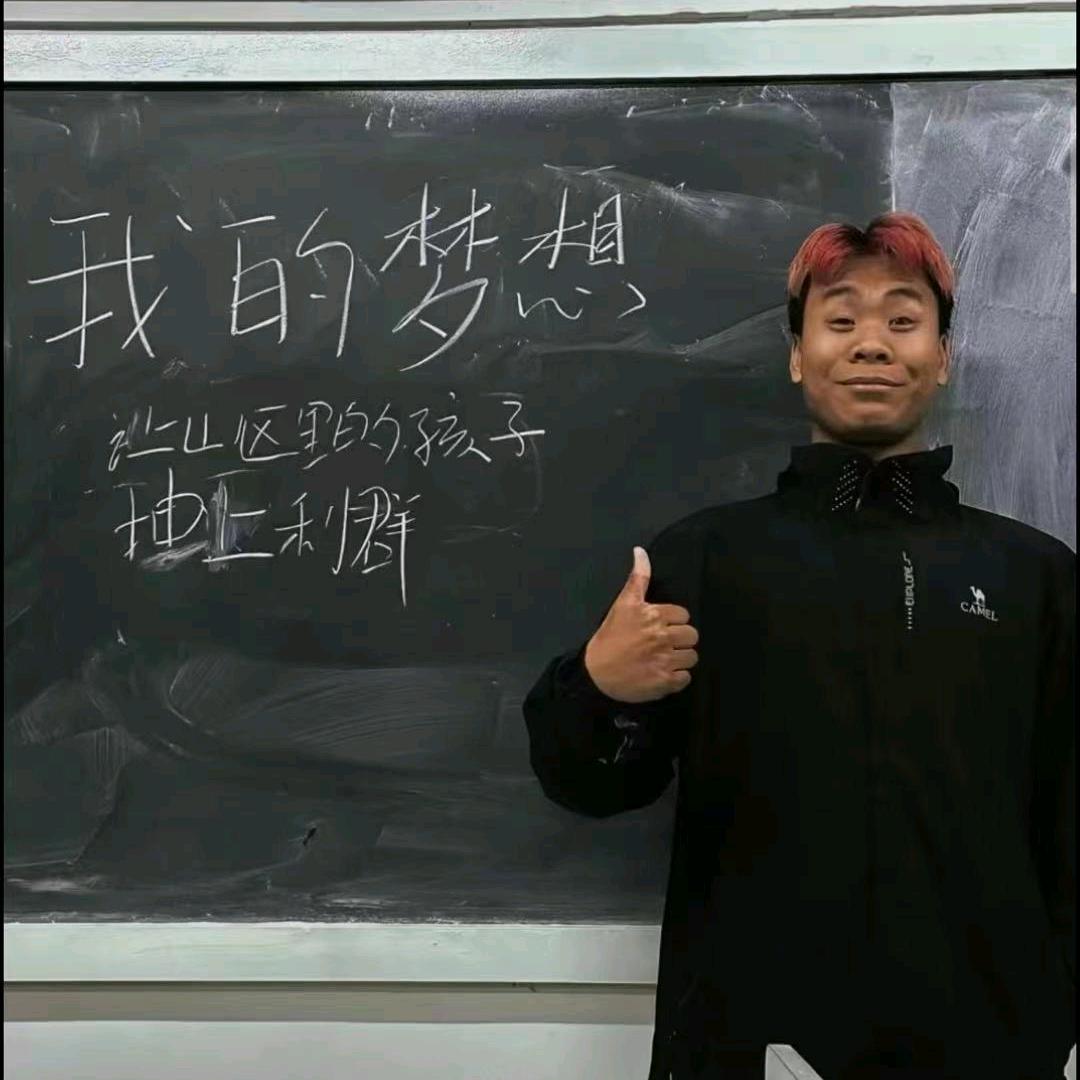 我的梦想
让山区里的孩子
抽上利群
EXPLORE
CAMEL